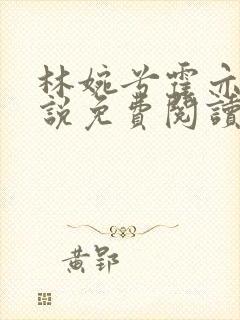 林婉兮霍亦
說免費閱讀
黃郢